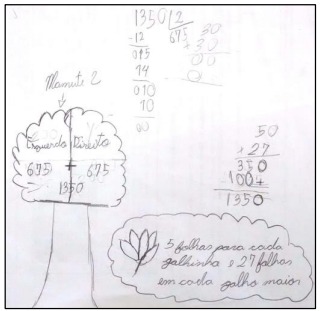 1350 | 2
-12 675
015
14
010
10
00
30
× 30
00
Mamute 2
Esquerdo Direito
675 + 675
1350
50
× 27
350
1004
1350
5 folhas para cada
galhinho e 27 folhas
em cada galho maior